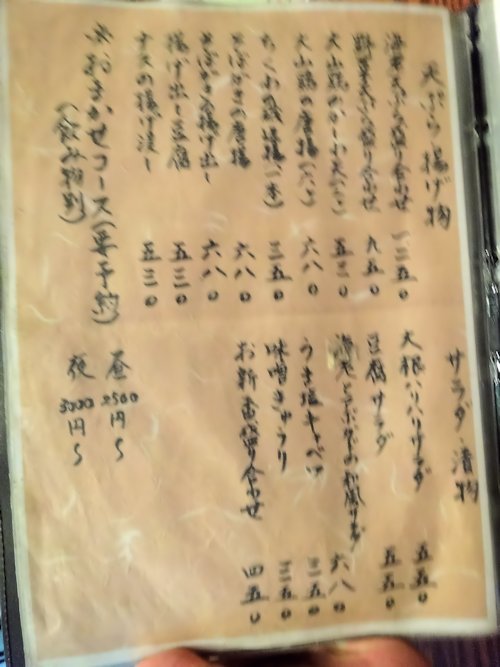 天ぷら・揚げ物
海老天ぷら盛り合わせ 一二五〇
野菜天ぷら盛り合わせ 九五〇
大山鶏のかしわ天 五三〇
大山鶏の唐揚 六八〇
ちくわの磯辺揚(一本) 三五〇
そばがきの唐揚 六八〇
そばがき入揚げ出し 六八〇
揚げ出し豆腐 五三〇
ナスの揚げ浸し 五三〇
※おまかせコース(要予約)
(飲み物別)
昼 2500円〜
夜 3000円〜
サラダ・漬物
大根ハリハリサラダ 五五〇
豆腐サラダ 五五〇
海老とアボカドの和風サラダ 六八〇
うま塩キャベツ 三五〇
味噌きゅうり 三五〇
お新香盛り合わせ 四五〇